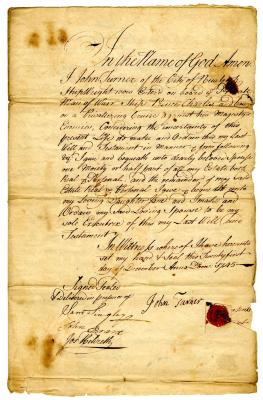 In the Name of God Amen
I John Turner of the City of New York
Shipwright now Enter'd on board of the Private
Man of Warr Ship Prince Charles and bound
on a Privateering Cruise against his Majestys
Enemies, Considering the uncertainty of this
present Life do make and Ordain this my Last
Will and Testament in manner & form following
I give and bequeath unto dearly beloved spouse
one Moiety or half part of all my Estate both
Real & Personal, and the remainder of my said
Estate Real & Personal I give & bequeath unto
my Loving Daughter Jane and I make and
Ordain my said Loving Spouse to be my
sole Executrix of this my Last Will and
Testament
In Witness whereof I have hereunto
set my hand & Seal this Twenty first
day of December Anno Dom 1745
Signed Sealed
& Delivered in presence of
John Turner
John
Jos Hildreth